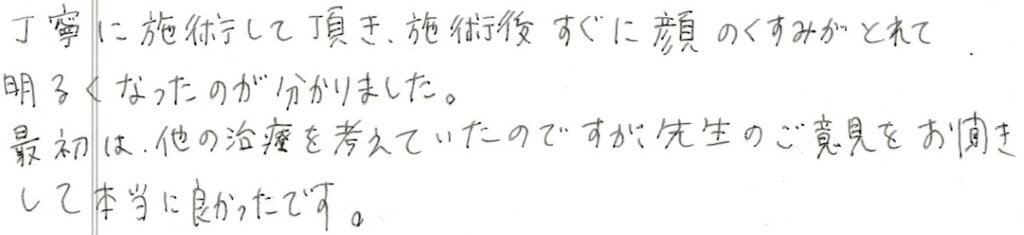 丁寧に施術して頂き、施術後すぐに顔のくすみがとれて
明るくなったのが分かりました。
最初は、他の治療を考えていたのですが、先生のご意見をお聞き
して本当に良かったです。